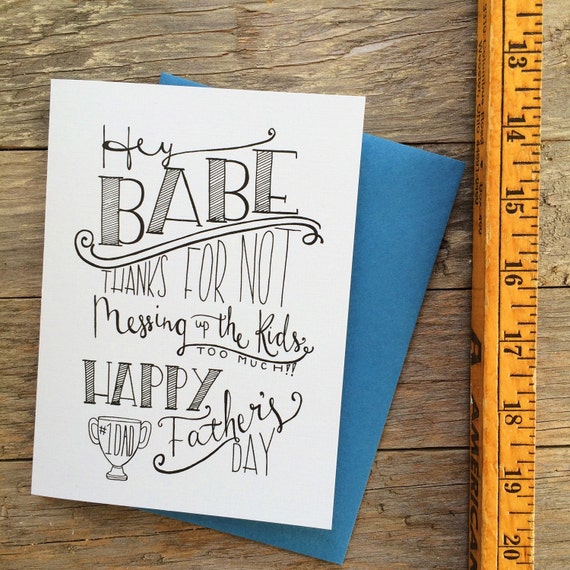 Hey
BABE
THANKS FOR NOT
Messing up the Kids
TOO MUCH!!
HAPPY
#1 DAD
Father's
DAY
13
14
15
16
17
18
19
20
AMERICAN